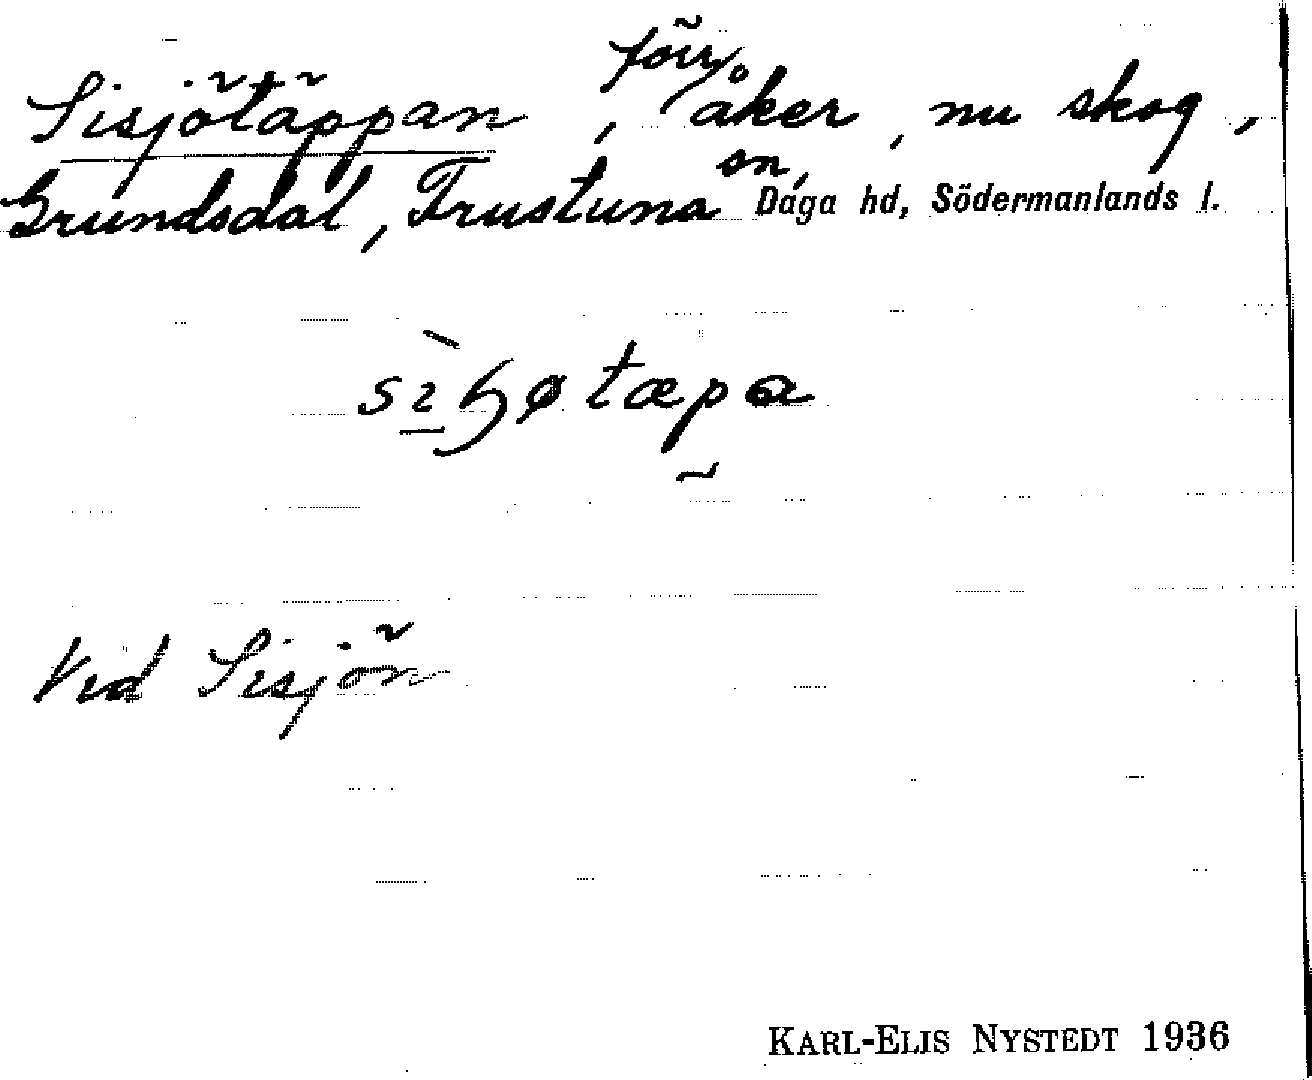 Sisjötäppan, förr åker, nu skog,
Grundsdal, Frustuna sn, Daga hd, Södermanlands l.
Vid Sisjön
KARL-ELIS NYSTEDT 1936